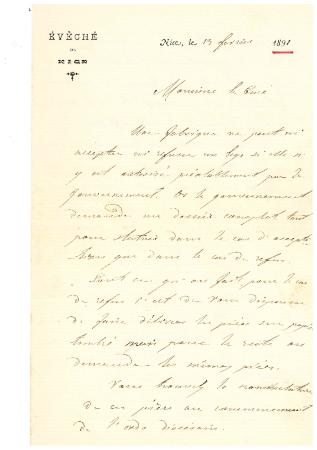 ÉVÊCHÉ
DE
NICE
Nice, le 13 février 1891
Monsieur le Curé
Une fabrique ne peut ni
accepter ni refuser un legs si elle n'
y est autorisé préalablement par le
Gouvernement. Or le gouvernement
demande un dossier complet tant
pour statuer dans le cas d'accepta
que dans le cas de refus.
Tout ce qui on fait pour le cas
de refus c'est de vous dispenser
de faire délivrer les pièces sur papier
timbré mais pour le reste on
demande les mêmes pièces.
Vous trouvez la nomenclature
de ces pièces au commencement
de l'ordo diocésain.